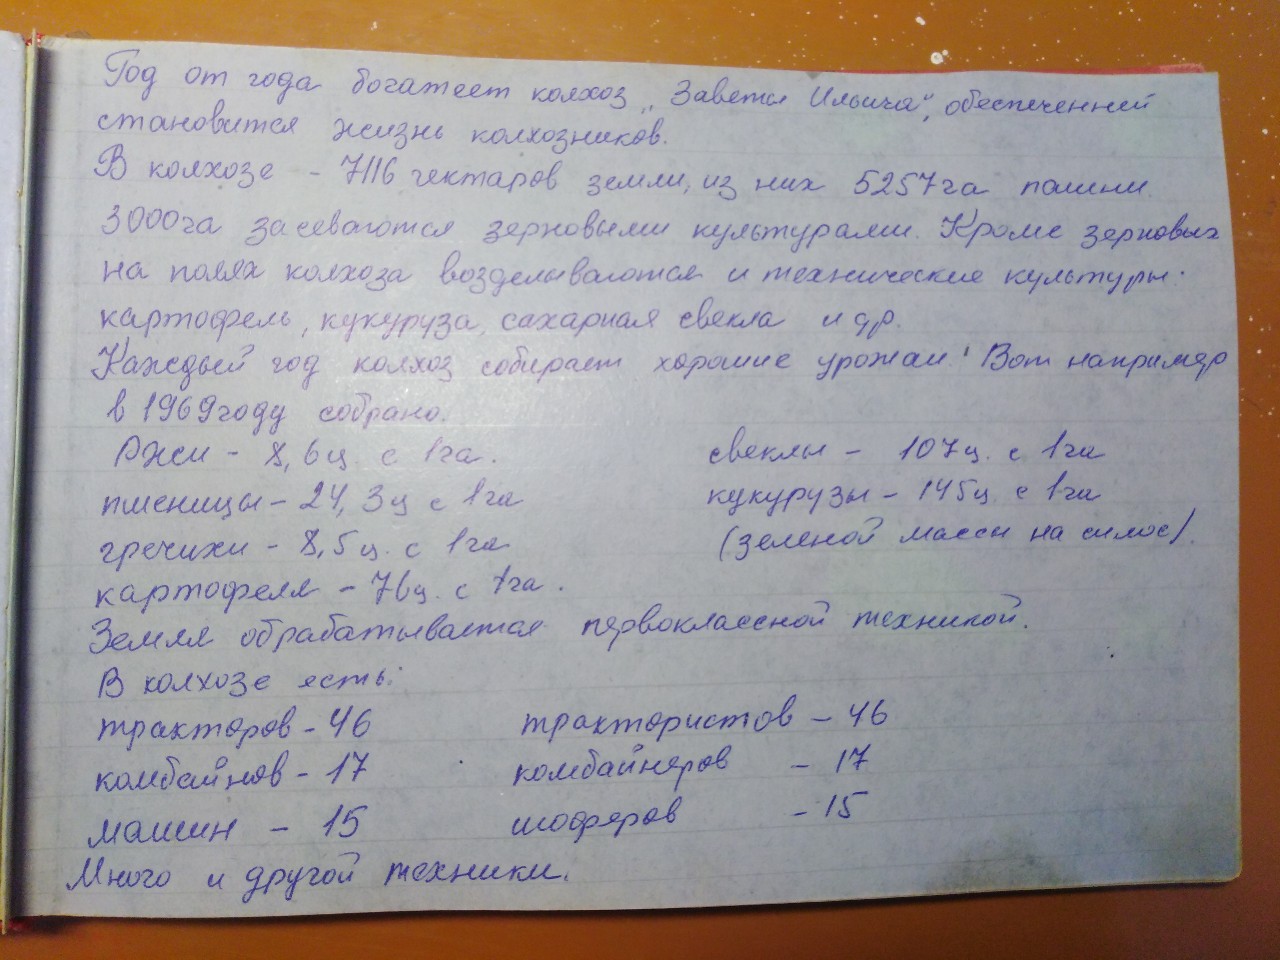 Год от года богатеет колхоз „Заветы Ильича“, обеспеченней
становится жизнь колхозников.
В колхозе - 7116 гектаров земли, из них 5257га пашни.
3000га засеваются зерновыми культурами. Кроме зерновых
на полях колхоза возделываются и технические культуры:
картофель, кукуруза, сахарная свекла и др.
Каждый год колхоз собирает хорошие урожаи. Вот например
в 1969году собрано.
Ржи - 8,6ц. с 1га. свеклы - 107ц. с 1га
пшеницы - 24,3ц с 1га кукурузы - 145ц. с 1га
гречихи - 8,5ц. с 1га (зеленой массы на силос).
картофеля - 76ц. с 1га.
Земля обрабатывается первоклассной техникой.
В колхозе есть:
тракторов - 46 трактористов - 46
комбайнов - 17 комбайнеров - 17
машин - 15 шоферов - 15
Много и другой техники.